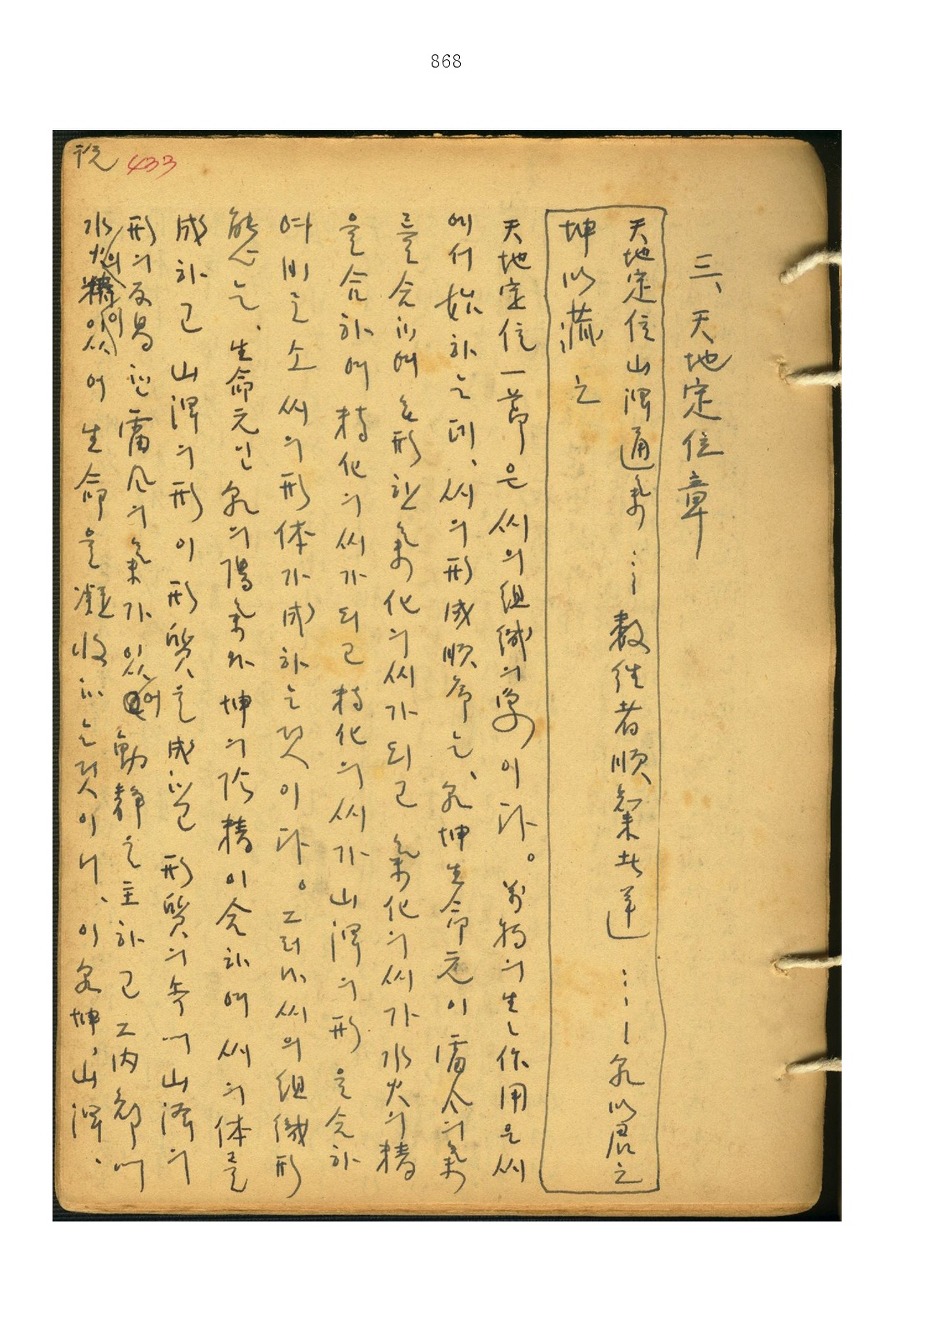 868
説 433
三、天地定位章
天地定位山澤通氣 … 數往者順 知來者逆 … 乾以君之
坤以藏之
天地定位一節은 씨의 組織의 象이다。 萬物의 生生作用은 씨
에서 始하는데、씨의 形成順序는、乾坤生命元이 雷風의 氣
를 含하여 無形한 氣化의 씨가 되고 氣化의 씨가 水火의 精
을 含하여 精化의 씨가 되고 精化의 씨가 山澤의 形을 含하
여 비로소 씨의 形体가 成하는것이다。 그러나 씨의 組織形
態는、生命元인 乾의 陽氣와 坤의 陰精이 含하여 씨의 体를
成하고 山澤의 形이 形質을 成하고 形質의 속에 山澤의
形의 反易인 雷風의 氣가 있어 動靜을 主하고 그 內部에
水火의 精이 있어 生命을 凝收하는것이니、이 乾坤、山澤、